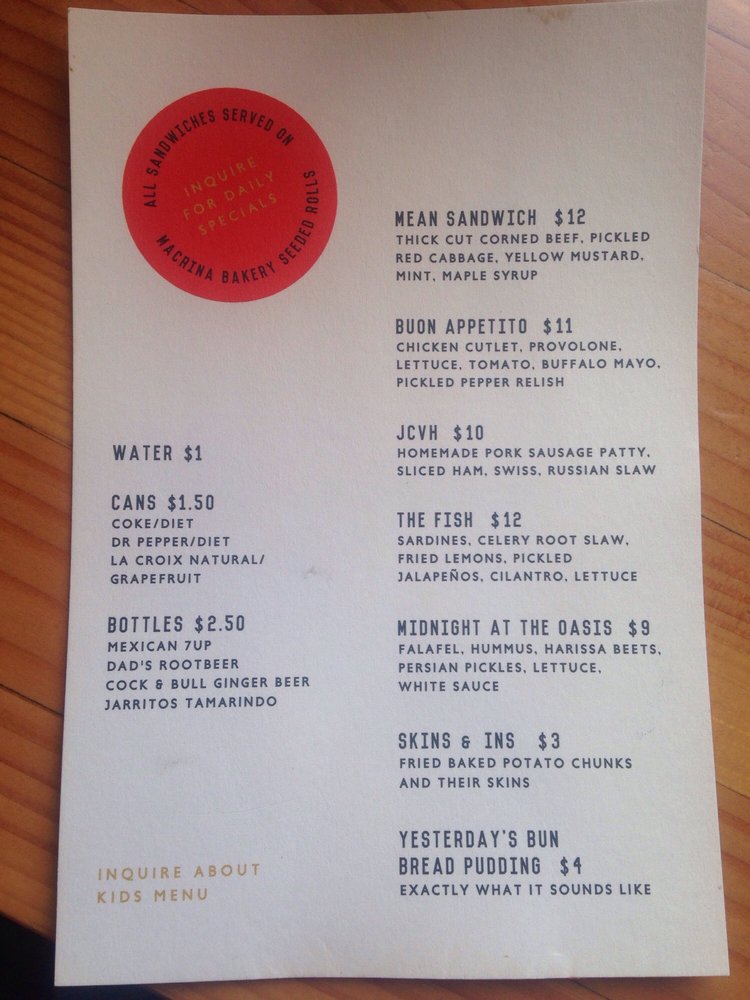 ALL SANDWICHES SERVED ON
MACRINA BAKERY SEEDED ROLLS
INQUIRE
FOR DAILY
SPECIALS
WATER $1
CANS $1.50
COKE/DIET
DR PEPPER/DIET
LA CROIX NATURAL/
GRAPEFRUIT
BOTTLES $2.50
MEXICAN 7UP
DAD'S ROOTBEER
COCK & BULL GINGER BEER
JARRITOS TAMARINDO
INQUIRE ABOUT
KIDS MENU
MEAN SANDWICH $12
THICK CUT CORNED BEEF, PICKLED
RED CABBAGE, YELLOW MUSTARD,
MINT, MAPLE SYRUP
BUON APPETITO $11
CHICKEN CUTLET, PROVOLONE,
LETTUCE, TOMATO, BUFFALO MAYO,
PICKLED PEPPER RELISH
JCVH $10
HOMEMADE PORK SAUSAGE PATTY,
SLICED HAM, SWISS, RUSSIAN SLAW
THE FISH $12
SARDINES, CELERY ROOT SLAW,
FRIED LEMONS, PICKLED
JALAPEÑOS, CILANTRO, LETTUCE
MIDNIGHT AT THE OASIS $9
FALAFEL, HUMMUS, HARISSA BEETS,
PERSIAN PICKLES, LETTUCE,
WHITE SAUCE
SKINS & INS $3
FRIED BAKED POTATO CHUNKS
AND THEIR SKINS
YESTERDAY'S BUN
BREAD PUDDING $4
EXACTLY WHAT IT SOUNDS LIKE